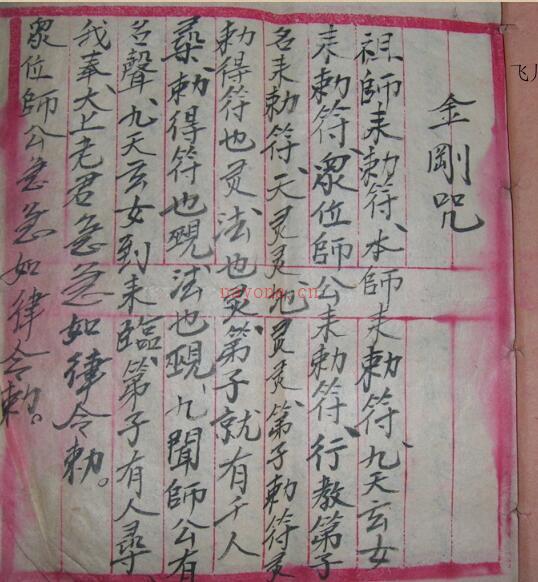 金剛咒
祖師来勅符、本師来勅符、九天玄女
来勅符、衆位師公来勅符、行教第子
名来勅符、天灵灵地灵灵、第子勅符灵
勅得符也灵、法也灵、第子就有千人
勅得符也現、法也現、九聞師公有
名聲、九天玄女到来臨、第子有人尋
我奉、太上老君急急如律令勅。
衆位師公急急如律令勅。
nayona.cn
飞